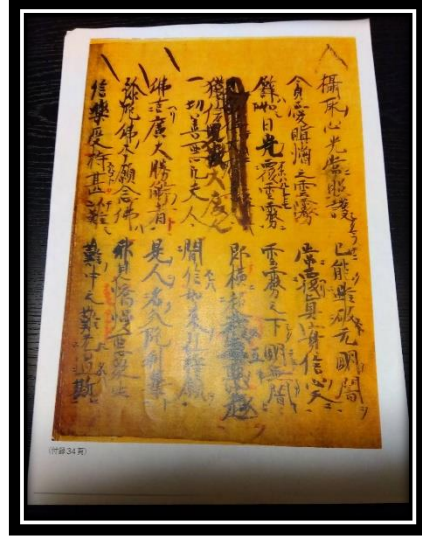 攝取心光常照護 已能雖破无明闇
貪愛瞋憎之雲霧 常覆眞實信心天
譬如日光覆雲霧 雲霧之下明无闇
獲信見敬大慶人 即横超截五惡趣
一切善惡凡夫人 聞信如來弘誓願
佛言廣大勝解者 是人名分陀利華
弥陀佛本願念佛 邪見憍慢惡衆生
信樂受持甚以難 難中之難无過斯
(付録34頁)